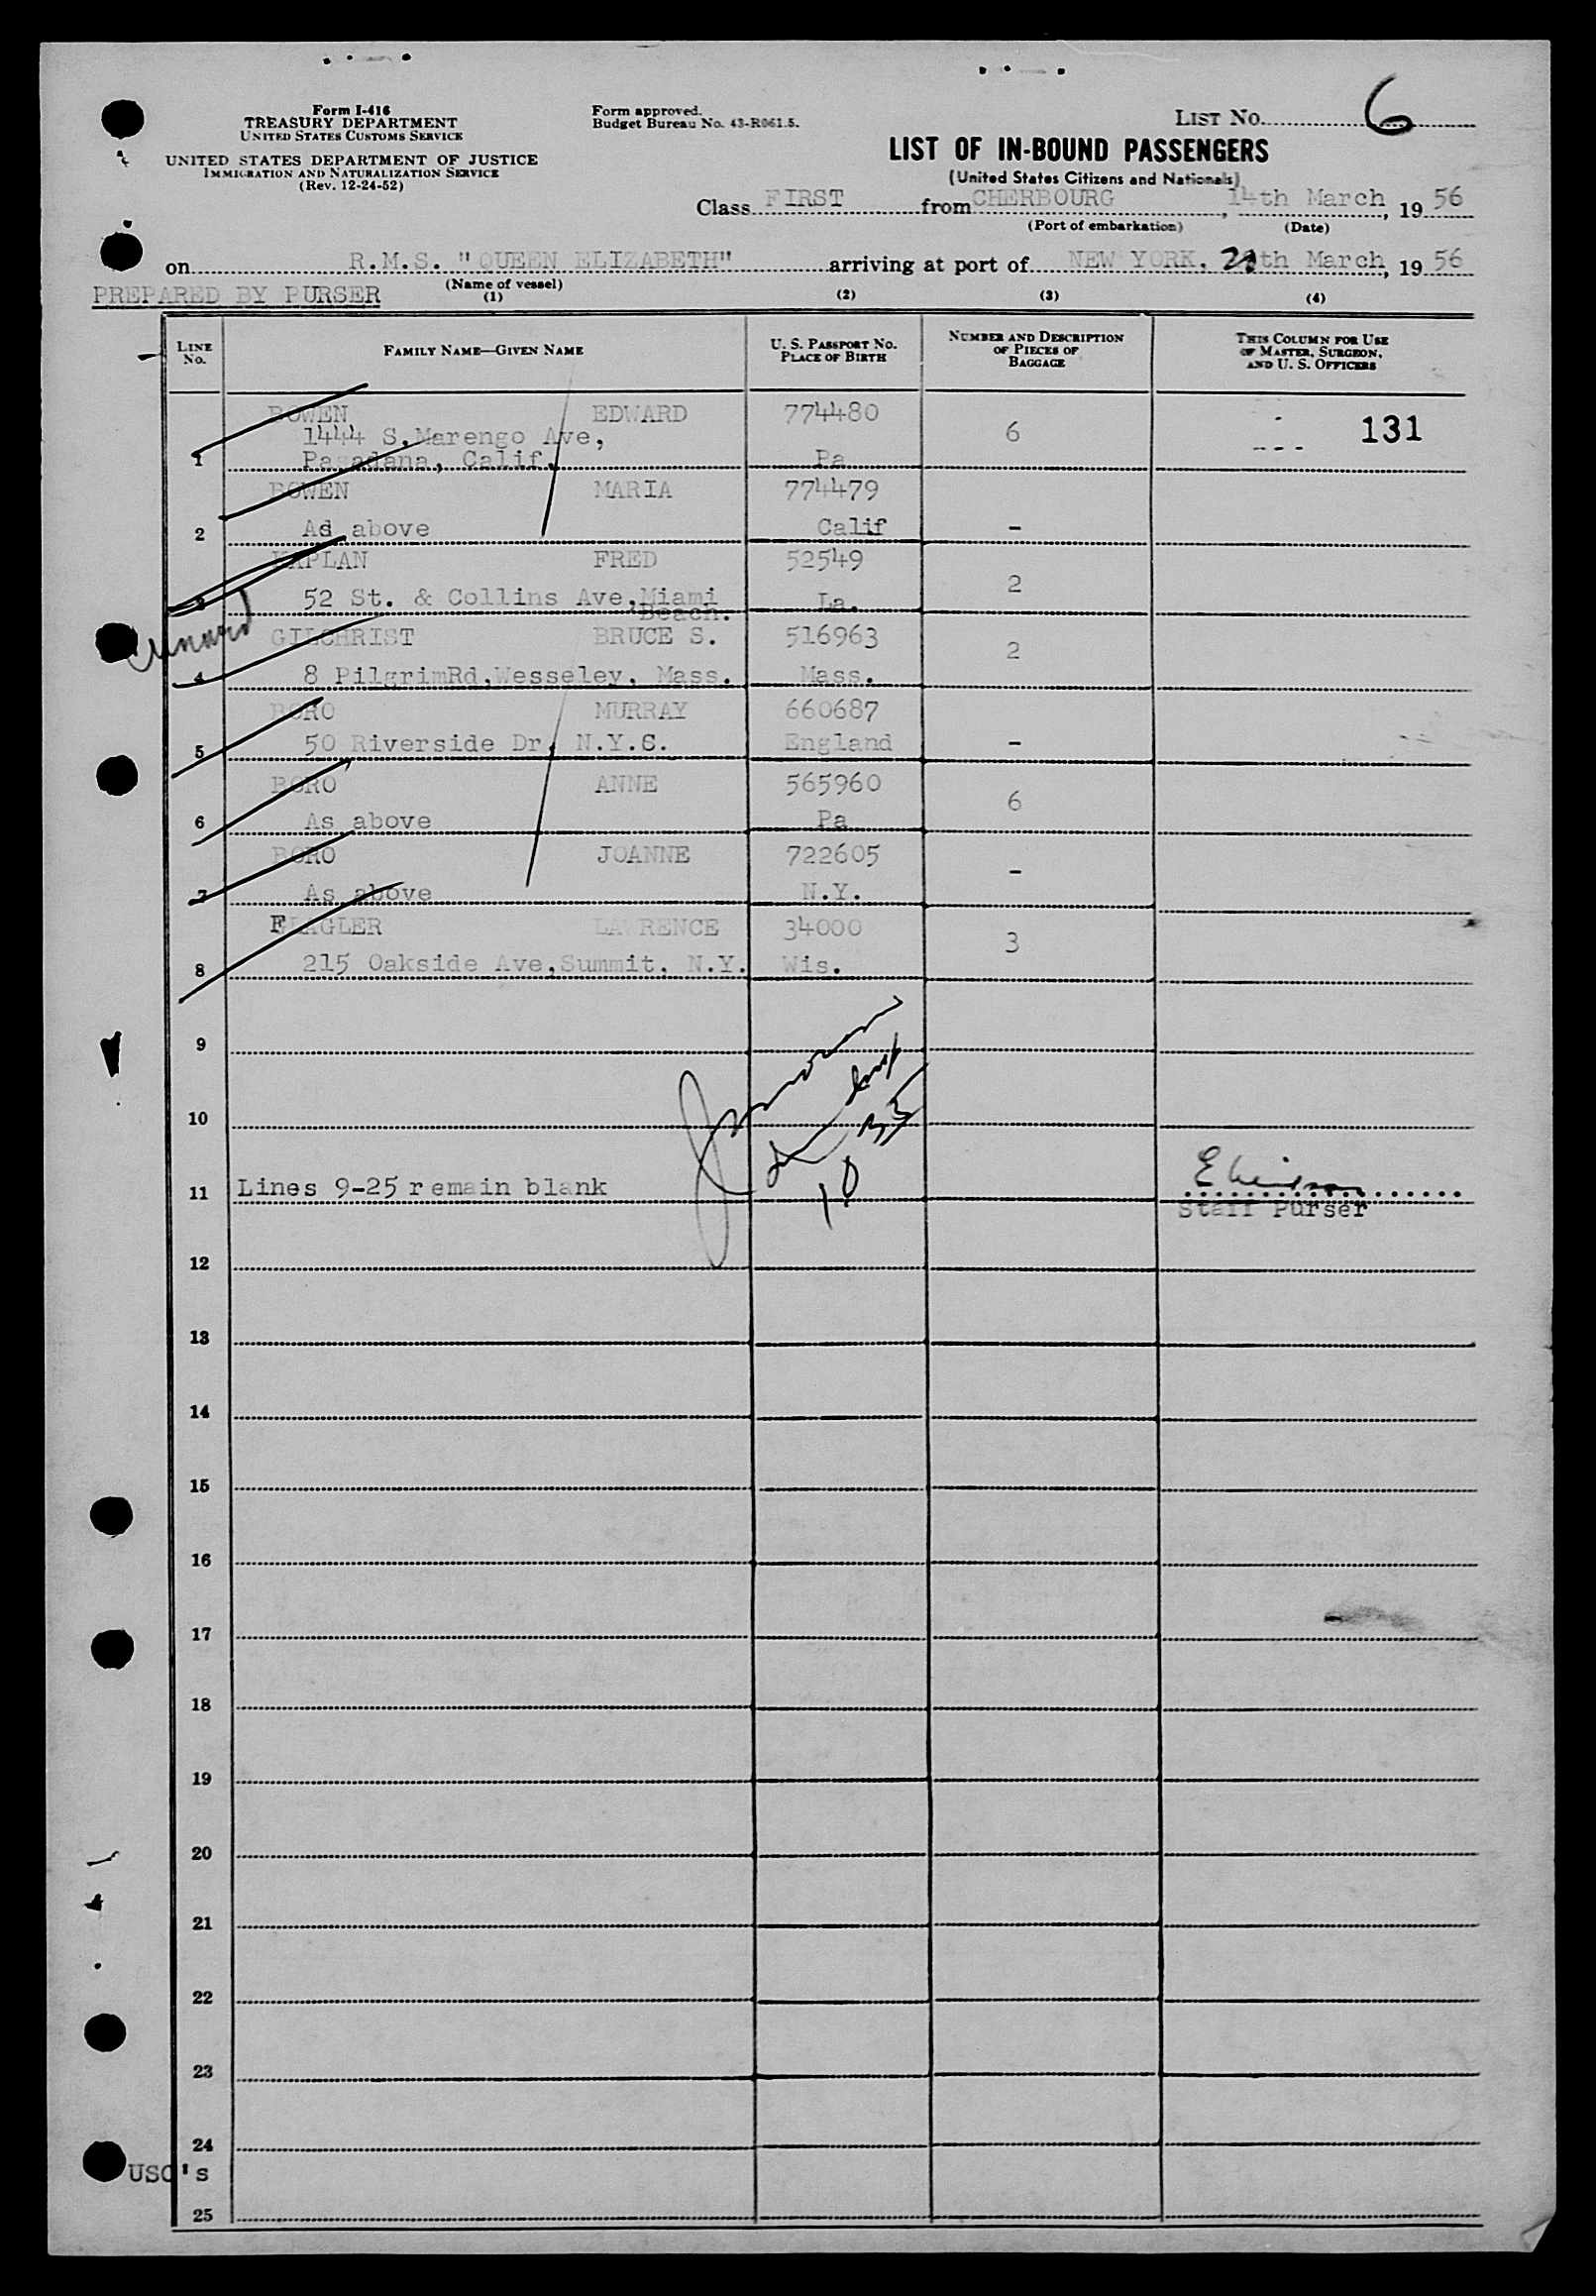 Form I-416
TREASURY DEPARTMENT
UNITED STATES CUSTOMS SERVICE
UNITED STATES DEPARTMENT OF JUSTICE
IMMIGRATION AND NATURALIZATION SERVICE
(Rev. 12-24-52)
Form approved.
Budget Bureau No. 43-R061.5.
LIST No. 6
LIST OF IN-BOUND PASSENGERS
(United States Citizens and Nationals)
Class FIRST from CHERBOURG, 14th March, 19 56
(Port of embarkation) (Date)
on R.M.S. "QUEEN ELIZABETH" arriving at port of NEW YORK, th March, 19 56
(Name of vessel)
PREPARED BY PURSER
(1) (2) (3) (4)
LINE No. FAMILY NAME—GIVEN NAME U. S. PASSPORT No. PLACE OF BIRTH NUMBER AND DESCRIPTION OF PIECES OF BAGGAGE THIS COLUMN FOR USE OF MASTER, SURGEON, AND U. S. OFFICERS
BOWEN EDWARD 774480
1444 S.Marengo Ave, 6 131
1 Pasadena, Calif. Pa
BOWEN MARIA 774479
2 As above Calif -
KAPLAN FRED 52549
3 52 St. & Collins Ave,Miami La. 2
Beach.
Cunard
GILCHRIST BRUCE S. 516963
4 8 PilgrimRd,Wesseley, Mass. Mass. 2
BORO MURRAY 660687
5 50 Riverside Dr, N.Y.C. England -
BORO ANNE 565960
6 As above Pa 6
BORO JOANNE 722605
7 As above N.Y. -
FLAGLER LAWRENCE 34000
8 215 Oakside Ave,Summit, N.Y. Wis. 3
9
10
11 Lines 9-25 remain blank
Staff Purser
12
13
14
15
16
17
18
19
20
21
22
23
24
USC's
25